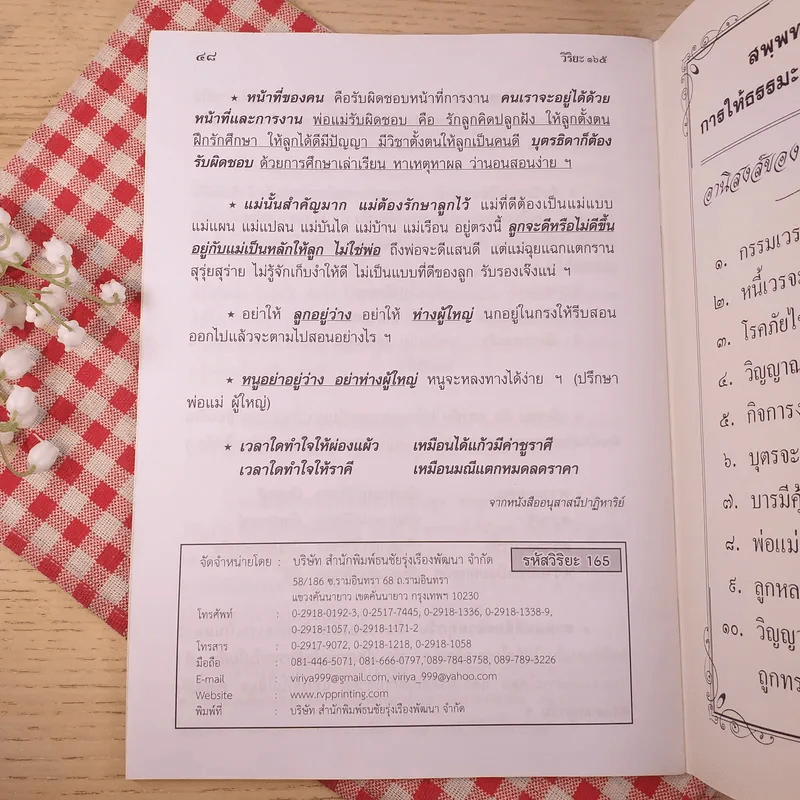 ๔๘ วิริยะ ๑๖๕
★ หน้าที่ของคน คือรับผิดชอบหน้าที่การงาน คนเราจะอยู่ได้ด้วย
หน้าที่และการงาน พ่อแม่รับผิดชอบ คือ รักลูกคิดปลูกฝัง ให้ลูกตั้งตน
ฝึกรักศึกษา ให้ลูกได้ดีมีปัญญา มีวิชาตั้งตนให้ลูกเป็นคนดี บุตรธิดาก็ต้อง
รับผิดชอบ ด้วยการศึกษาเล่าเรียน หาเหตุหาผล ว่านอนสอนง่าย ฯ
★ แม่นั้นสำคัญมาก แม่ต้องรักษาลูกไว้ แม่ที่ดีต้องเป็นแม่แบบ
แม่แผน แม่แปลน แม่บันได แม่บ้าน แม่เรือน อยู่ตรงนี้ ลูกจะดีหรือไม่ดีขึ้น
อยู่กับแม่เป็นหลักให้ลูก ไม่ใช่พ่อ ถึงพ่อจะดีแสนดี แต่แม่ฉุยแฉกแตกราน
สุรุ่ยสุร่าย ไม่รู้จักเก็บงำให้ดี ไม่เป็นแบบที่ดีของลูก รับรองเจ๊งแน่ ฯ
★ อย่าให้ ลูกอยู่ว่าง อย่าให้ ห่างผู้ใหญ่ นกอยู่ในกรงให้รีบสอน
ออกไปแล้วจะตามไปสอนอย่างไร ฯ
★ หนูอย่าอยู่ว่าง อย่าห่างผู้ใหญ่ หนูจะหลงทางได้ง่าย ฯ (ปรึกษา
พ่อแม่ ผู้ใหญ่)
★ เวลาใดทำใจให้ผ่องแผ้ว เหมือนได้แก้วมีค่าชูราศี
เวลาใดทำใจให้ราคี เหมือนมณีแตกหมดลดราคา
จากหนังสืออนุสาสนีปาฏิหาริย์
จัดจำหน่ายโดย : บริษัท สำนักพิมพ์ธนชัยรุ่งเรืองพัฒนา จำกัด รหัสวิริยะ 165
58/186 ซ.รามอินทรา 68 ถ.รามอินทรา
แขวงคันนายาว เขตคันนายาว กรุงเทพฯ 10230
โทรศัพท์ : 0-2918-0192-3, 0-2517-7445, 0-2918-1336, 0-2918-1338-9,
0-2918-1057, 0-2918-1171-2
โทรสาร : 0-2917-9072, 0-2918-1218, 0-2918-1058
มือถือ : 081-446-5071, 081-666-0797, 089-784-8758, 089-789-3226
E-mail : viriya999@gmail.com, viriya_999@yahoo.com
Website : www.rvpprinting.com
พิมพ์ที่ : บริษัท สำนักพิมพ์ธนชัยรุ่งเรืองพัฒนา จำกัด
การให้ธรรมะ
อานิสงส์ของ
๑. กรรมเวร
๒. หนี้เวรจะ
๓. โรคภัยไข
๔. วิญญาณ
๕. กิจการง
๖. บุตรจะ
๗. บารมีคุ้
๘. พ่อแม่
๙. ลูกหล
๑๐. วิญญา
ถูกทร